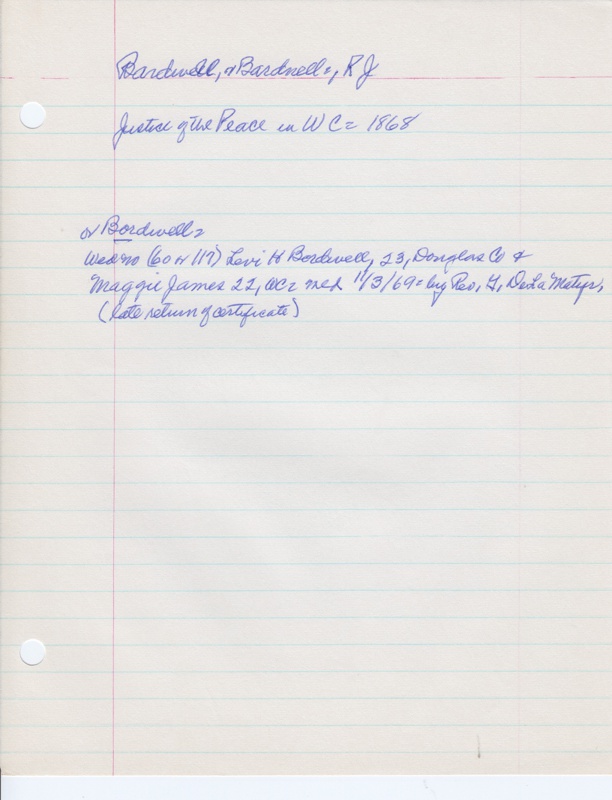 Bardwell, or Bardnell=, R J
Justice of the Peace in W C= 1868
or Bordwell=
Wed no (60 or 117) Levi H Bordwell, 23, Douglas Co &
Maggie James 22, OC= med 11/3/69= by Rev, G, DeLa Matyr,
(late return of certificate)